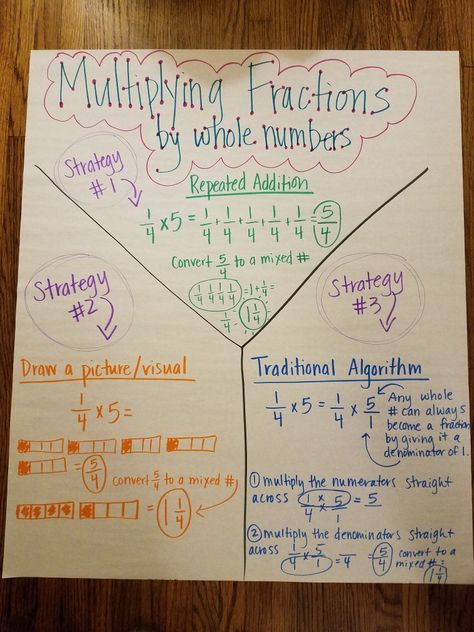 Multiplying Fractions
by whole numbers
Strategy
#1
Repeated Addition
1/4 × 5 = 1/4 + 1/4 + 1/4 + 1/4 + 1/4 = 5/4
convert 5/4 to a mixed #
1/4 1/4 1/4 1/4 = 1 + 1/4 =
1/4 = 1 1/4
Strategy
#2
Draw a picture/visual
1/4 × 5 =
= 5/4
convert 5/4 to a mixed #
= 1 1/4
Strategy
#3
Traditional Algorithm
1/4 × 5 = 1/4 × 5/1
Any whole
# can always
become a fraction
by giving it a
denominator of 1.
① multiply the numerators straight
across 1/4 × 5/1 = 5
② multiply the denominators straight
across 1/4 × 5/1 = /4 = 5/4
convert to a
mixed # =
1 1/4